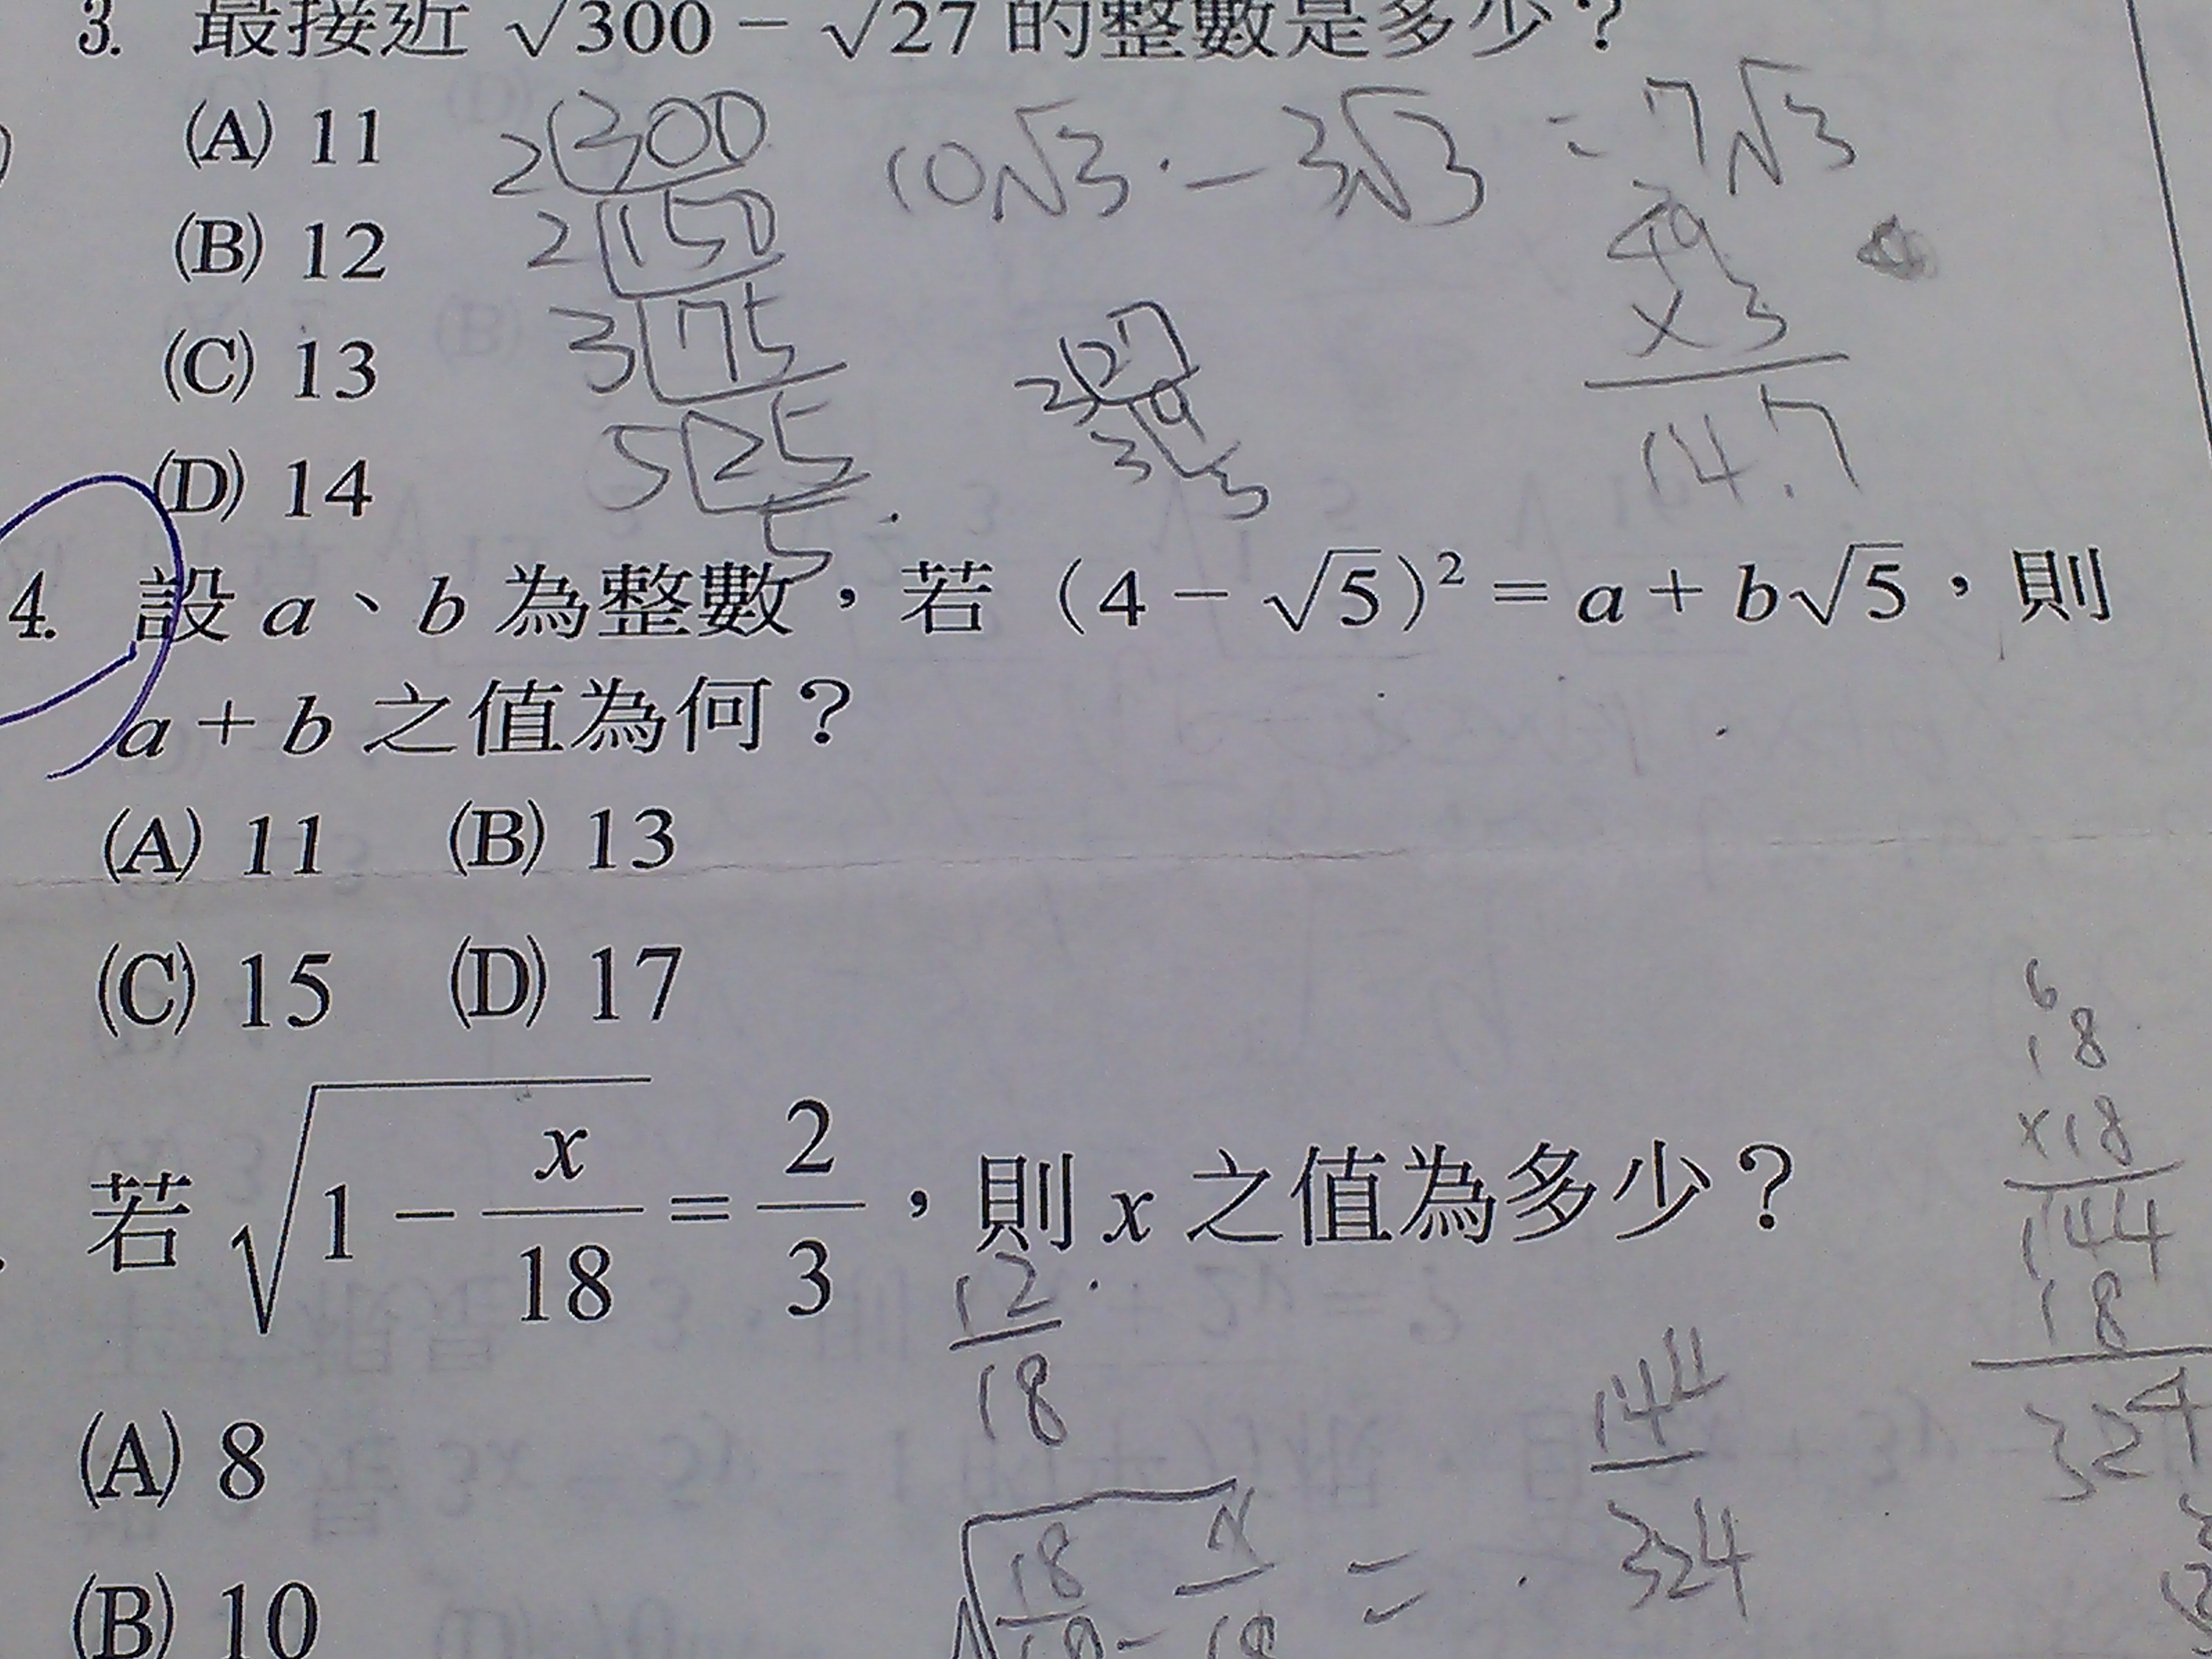 3. 最接近 √300 − √27 的整數是多少？
(A) 11
(B) 12
(C) 13
(D) 14
2 300
2 150
3 75
5 25
5
10√3 − 3√3 = 7√3
3 27
3 9
3
49
×3
147
4. 設 a、b 為整數，若 (4 − √5)² = a + b√5，則
a + b 之值為何？
(A) 11 (B) 13
(C) 15 (D) 17
若 √(1 − x/18) = 2/3，則 x 之值為多少？
(A) 8
(B) 10
12/18
√(18/18 − x/18) =
144/324
6
18
×18
144
18
324